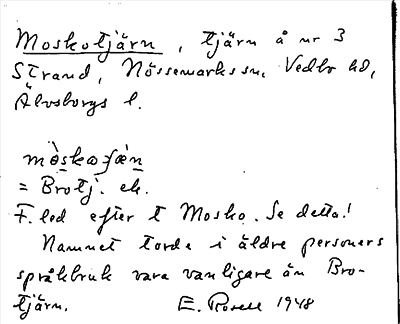 Moskotjärn, tjärn å nr 3
Strand, Nössemarks sn, Vedbo hd,
Älvsborgs l.
mòskoɟæ̀n
= Brotj. ek.
F.led efter t Mosko. Se detta!
Namnet torde i äldre personers
språkbruk vara vanligare än Bro-
tjärn. E. Rosell 1948